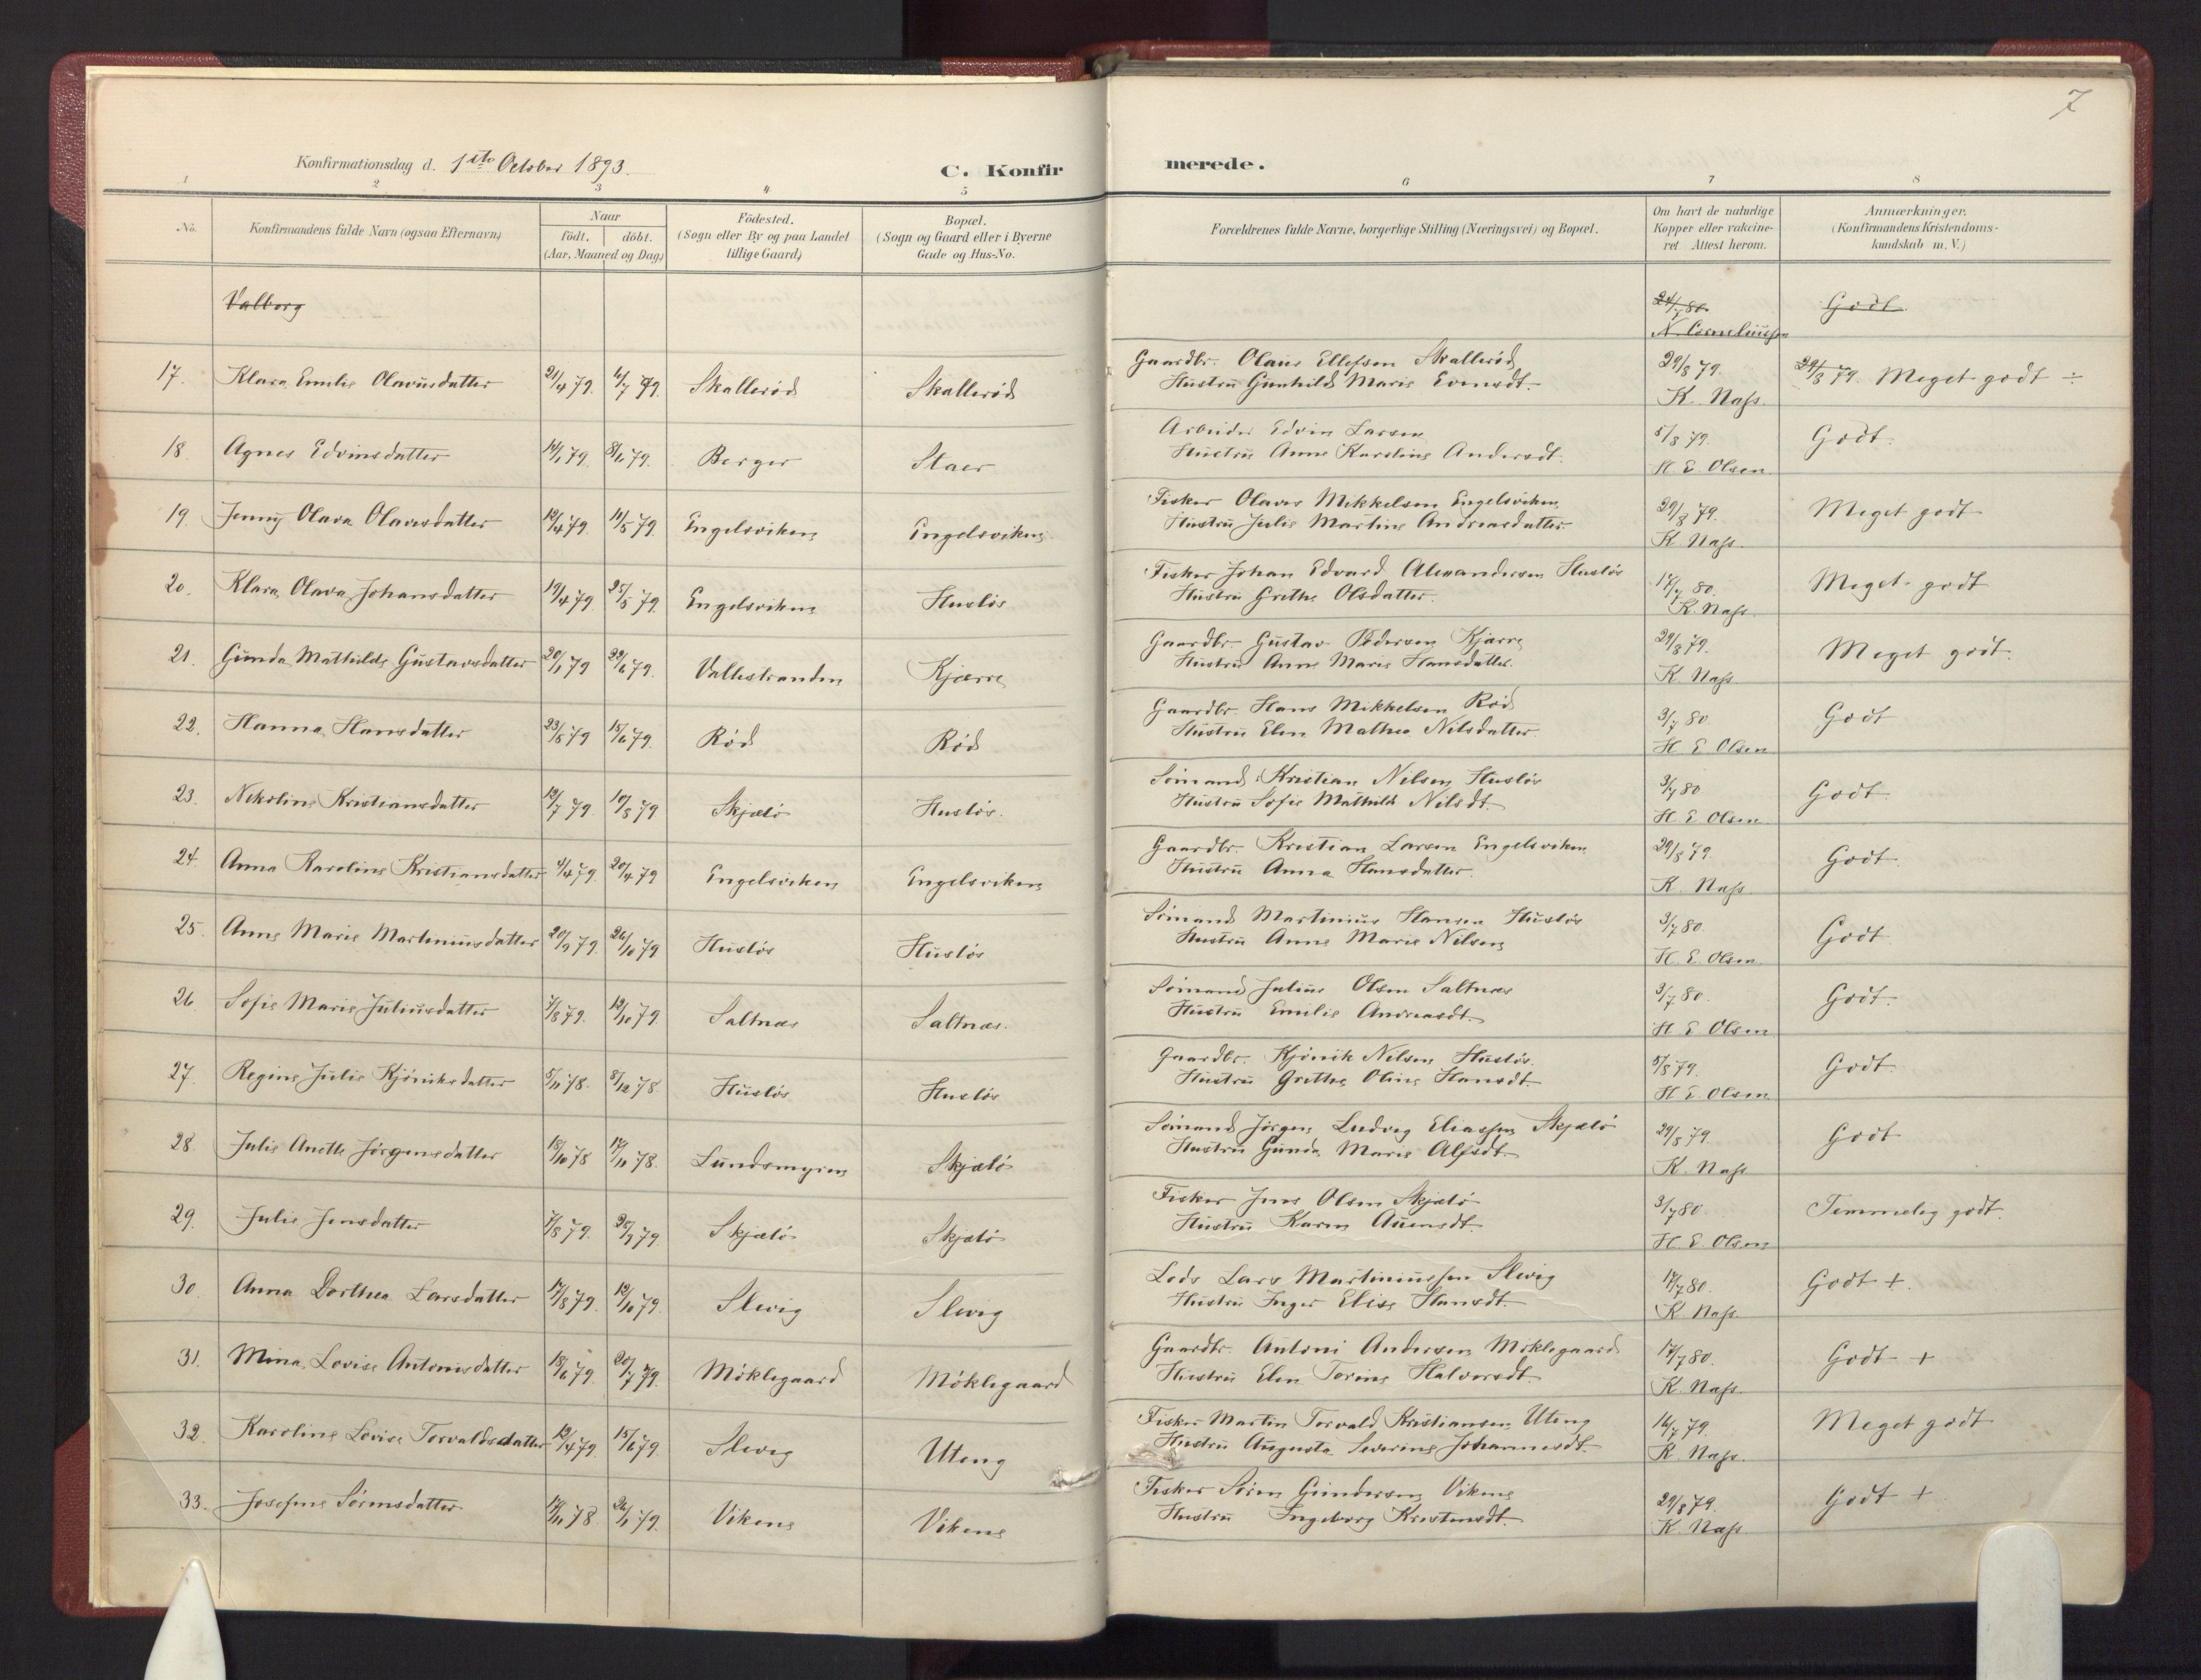 7
Konfirmationsdag d. 1ste October 1893.
C. Konfirmerede.
1 2 3 4 5 6 7 8
No. Konfirmandens fulde Navn (ogsaa Efternavn) Naar födt. döbt. (Aar, Maaned og Dag) Födested. (Sogn eller By og paa Landet tillige Gaard) Bopæl. (Sogn og Gaard eller i Byerne Gade og Hus-No. Forældrenes fulde Navne, borgerlige Stilling (Næringsvei) og Bopæl. Om havt de naturlige Kopper eller vakcineret. Attest herom. Anmærkninger. (Konfirmandens Kristendomskundskab m. V.)
Valborg 24/7 80. N. Corneliussen Godt.
17. Klara Emilie Olavusdatter 21/4 79. 6/7 79. Skalleröd Skalleröd Gaardbr. Olaus Ellefsen Skalleröd 29/8 79. 29/8 79. Meget godt ÷
Hustru Gunhild Marie Evensdt. K. Næss.
18. Agnes Edvinsdatter 14/1 79. 8/6 79. Berger Staer Arbeider Edvin Larsen 5/8 79. Godt.
Hustru Anne Karoline Andersdt. H. E. Olsen
19. Jenny Olava Olavesdatter 12/4 79. 11/5 79. Engelsviken Engelsviken Fisker Olaves Mikkelsen Engelsviken 29/8 79. Meget godt
Hustru Julie Martine Andreasdatter K. Næss.
20. Klara Olava Johansdatter 19/4 79. 25/5 79. Engelsviken Huslös Fisker Johan Edvard Alexandersen Huslös 17/7 80. Meget godt
Hustru Grethe Olsdatter. K. Næss.
21. Gunda Mathilde Gustavsdatter 20/1 79 22/6 79. Vallestranden Kjærre Gaardbr. Gustav Pedersen Kjærre 29/8 79. Meget godt.
Hustru Anne Marie Hansdatter. K. Næss
22. Hanna Hansdatter 23/5 79 15/6 79. Röd Röd Gaardbr. Hans Mikkelsen Röd 3/7 80 Godt
Hustru Elen Mathea Nilsdatter. H. E. Olsen
23. Nikoline Kristiansdatter 12/7 79. 10/8 79 Skjælö Huslös. Sömand Kristian Nilsen Huslös 3/7 80 Godt.
Hustru Sofie Mathilde Nilsdt. H. E. Olsen
24. Anna Karoline Kristiansdatter 4/4 79. 20/4 79 Engelsviken Engelsviken Gaardbr. Kristian Larsen Engelsviken 29/8 79. Godt.
Hustru Anna Hansdatter. K. Næss.
25. Anne Marie Martiniusdatter 20/9 79. 26/10 79 Huslös Huslös Sömand Martinius Hansen Huslös 3/7 80. Godt
Hustru Anne Marie Nilsen H. E. Olsen
26 Sofie Marie Juliusdatter 7/8 79. 12/10 79. Saltnæs Saltnæs. Sömand Julius Olsen Saltnæs 3/7 80. Godt.
Hustru Emilie Andreasdt. H. E. Olsen
27. Regine Julie Kjöniksdatter 5/11 78. 8/12 78. Huslös Huslös Gaardbr. Kjönik Nilsen Huslös. 5/8 79. Godt.
Hustru Grethe Oline Hansdt. H. E. Olsen
28. Julie Anette Jörgensdatter 18/10 78 17/11 78. Lundsmyren Skjælö Sömand Jörgen Ludvig Eliassen Skjælö 29/8 79. Godt
Hustru Gunda Marie Alfsdt. K. Næss
29. Julie Jensdatter 7/8 79. 28/9 79. Skjælö Skjælö Fisker Jens Olsen Skjælö 3/7 80. Temmelig godt.
Hustru Karen Auensdt. H. E. Olsen
30. Anna Dorthea Larsdatter 17/8 79. 12/10 79. Slevig Slevig Lods Lars Martiniussen Slevig 17/7 80. Godt +.
Hustru Inger Elise Hansdt. K. Næss.
31. Mina Lovise Antonisdatter 18/6 79. 20/7 79. Möklegaard Möklegaard Gaardbr. Antoni Andersen Möklegaard 17/7 80. Godt +
Hustru Elen Torine Halvorsdt. K. Næss.
32. Karoline Lovise Torvaldsdatter 12/4 79. 15/6 79. Slevig Uteng Fisker Martin Torvald Kristiansen Uteng 16/7 79. Meget godt
Hustru Augusta Severine Johannesdt. K. Næss.
33. Josefine Sörensdatter 17/11 78. 26/1 79. Vikene Vikene Fisker Sören Gundersen Vikene 29/8 79. Godt +
Hustru Ingeborg Kristensdt. K. Næss